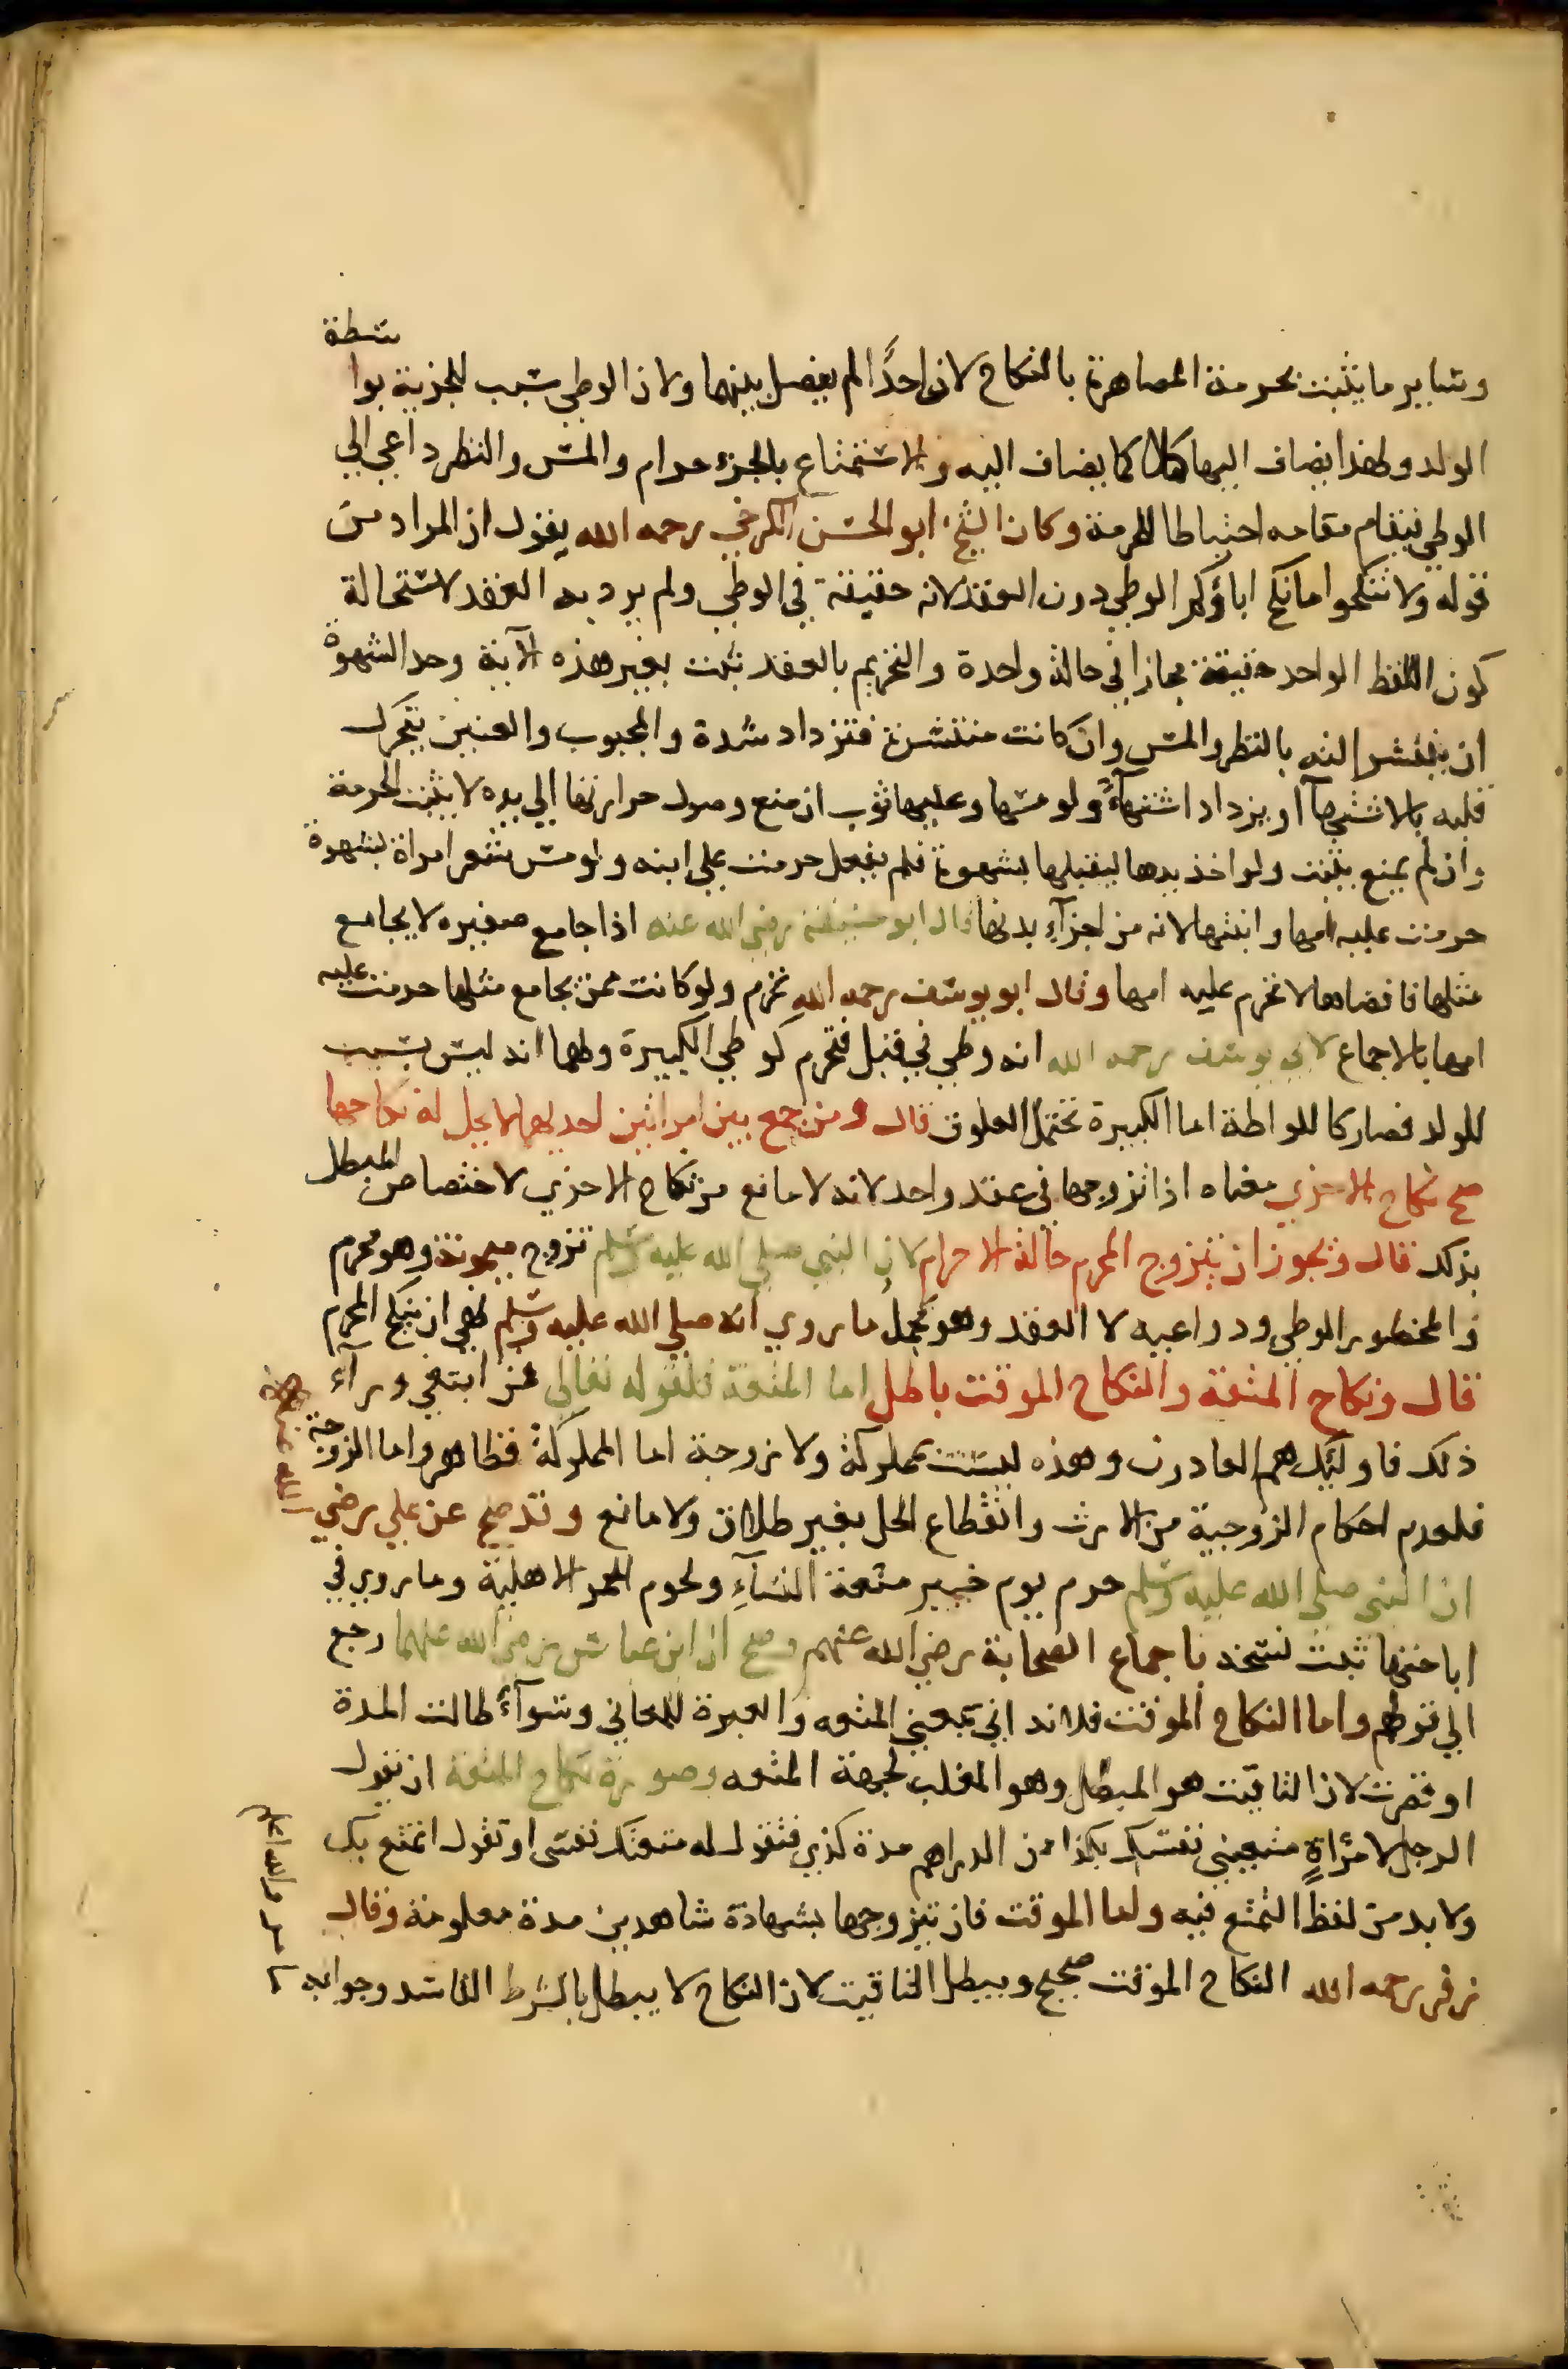 وساير ما يثبت بحرمة المصاهرة بالنكاح لان احدًا لم يفصل بينهما ولان الوطي سبب للجزية بواسطة
الولد ولهذا يضاف اليها كملا كما يضاف اليه والاستمتاع بالجزء حرام والمس والنظر داعي الي
الوطي فيقام مقامه احتياطا للحرمة وكان الشيخ ابو الحسن الكرخي رحمه الله يقول ان المراد من
قوله ولا تنكحوا ما نكح اباؤكم الوطي دون العقد لانه حقيقة في الوطي ولم يرد به العقد لاستحالة
كون اللفظ الواحد حقيقة مجازا في حالة واحدة والتحريم بالعقد ثبت بغير هذه الآية وحد الشهوة
ان ينتشر الته بالنظر والمس وان كانت منتشرة فتزداد شدة والمجبوب والعنين يتحرك
قلبه بالاشتهآ او يزداد اشتهآءً ولو مسها وعليها ثوب ان منع وصول حرارتها الي يده لا يثبت الحرمة
وان لم يمنع يثبت ولو اخذ يدها ليقبلها بشهوة فلم يفعل حرمت علي ابنه ولو مس شعر امراة بشهوة
حرمت عليه امها وابنتها لانه من اجزآءِ بدنها قال ابو حنيفة رضي الله عنه اذا جامع صغيره لا يجامع
مثلها فافضاها لا تحرم عليه امها وقال ابو يوسف رحمه الله تحرم ولو كانت ممن يجامع مثلها حرمت عليه
امها بالاجماع لابي يوسف رحمه الله انه وطي في قبل فتحرم كوطي الكبيرة ولهما انه ليس بسبب
للولد فصار كاللواطة اما الكبيرة تحتمل العلوق قال ومن جمع بين امراتين احديهما لا يحل له نكاحها
صح نكاح الاخري معناه اذا تزوجها في عقد واحد لانه لا مانع من نكاح الاخري لاختصاص المبطل
بذلك قال ويجوز ان يتزوج المحرم حالة الاحرام لان النبي صلي الله عليه وسلم تزوج ميمونة وهو محرم
والمحظور الوطي ودواعيه لا العقد وهو محمل ما روي انه صلي الله عليه وسلم نهي ان ينكح المحرم
قال ونكاح المتعة والنكاح الموقت باطل اما المتعة فلقوله تعالي فمن ابتغي ورآء
ذلك فاوليك هم العادون وهذه ليست مملوكة ولا زوجة اما المملوكة فظاهر واما الزوجة
فلعدم احكام الزوجية من الارث وانقطاع الحل بغير طلاق ولا مانع وقد صح عن علي رضي الله عنه
ان النبي صلي الله عليه وسلم حرم يوم خيبر متعة النسآءِ ولحوم الحمر الاهلية وما روي في
اباحتها ثبت نسخه باجماع الصحابة رضي الله عنهم وصح ان ابن عباس رضي الله عنهما رجع
الي قولهم واما النكاح الموقت فلانه اني بمعني المتعه والعبرة للمعاني وسوآءً طالت المدة
او قصرت لان التاقيت هو المبطل وهو المغلب لجهة المتعه وصورة نكاح المتعة ان يقول
الرجل لامرُاةٍ متعيني نفسك بكذا من الدراهم مدة كذي فتقول له متعتك نفسي او تقول اتمتع بك
ولا بد من لفظ التمتع فيه واما الموقت فان يتزوجها بشهادة شاهدين مدة معلومة وقال
زفر رحمه الله النكاح الموقت صحيح ويبطل التاقيت لان النكاح لا يبطل بالشرط الفاسد وجوابه